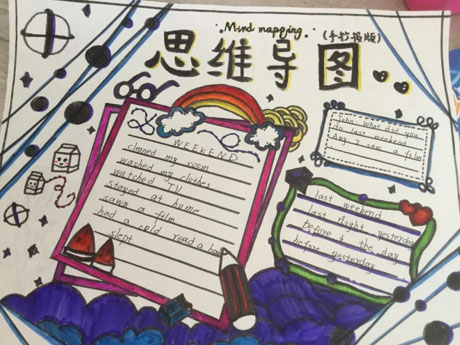 Mind mapping
思维导图
(手抄报版)
WEEKEND
cleaned my room
washed my clothes
watched TV
stayed at home
saw a film
had a cold read a book
slept
John. what did you
do last weekend
day I saw a film
last weekend
last night yesterday
before the day
before yesterday